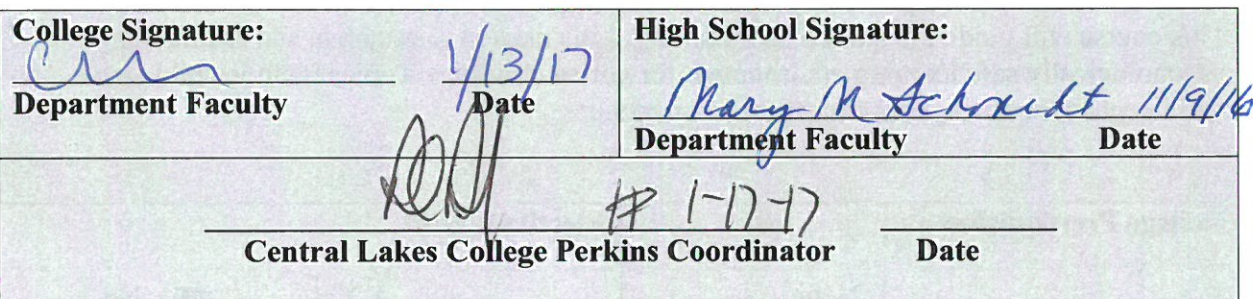 College Signature:
1/13/17
Department Faculty Date
High School Signature:
Mary M Schmidt 11/9/16
Department Faculty Date
# 1-17-17
Central Lakes College Perkins Coordinator Date